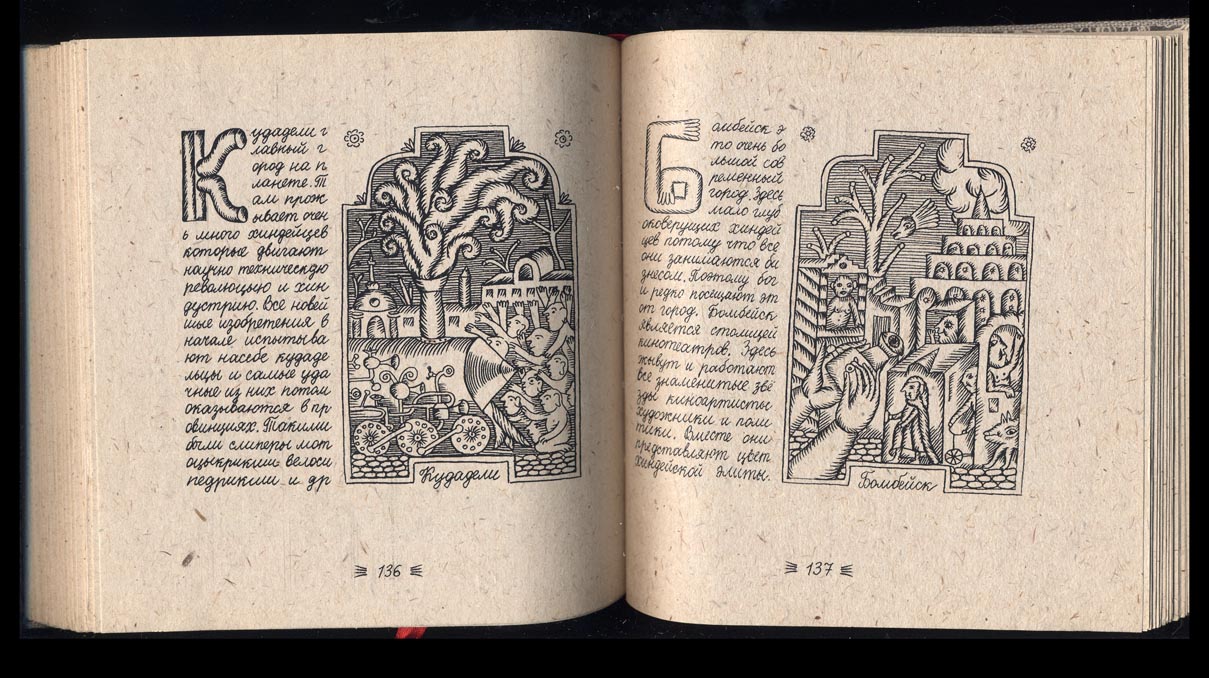 Кудадели г
лавный г
ород на п
ланете. Т
ам прож
ывает очен
ь много хиндейцев
которые двигают
научно техническую
революцыю и хин
дустрию. Все новей
шые изобретения в
начале испытыва
ют насебе кудаде
льцы и самые уда
чные из них потом
оказываются в пр
овинциях. Такими
были слиперы мот
оцыкрикши велоси
педрикши и др
Кудадели
136
Бомбейск э
то очень бо
льшой сов
ременный
город. Здесь
мало глуб
оковерущих хиндей
цев потому что все
они занимаются би
знесом. Поэтому бог
и редко посещают эт
от город. Бомбейск
является столицей
кинотеатров. Здесь
жывут и работают
все знаменитые звё
зды киноартисты
художники и поли
тики. Вместе они
представляют цвет
хиндейской элиты.
Бомбейск
137